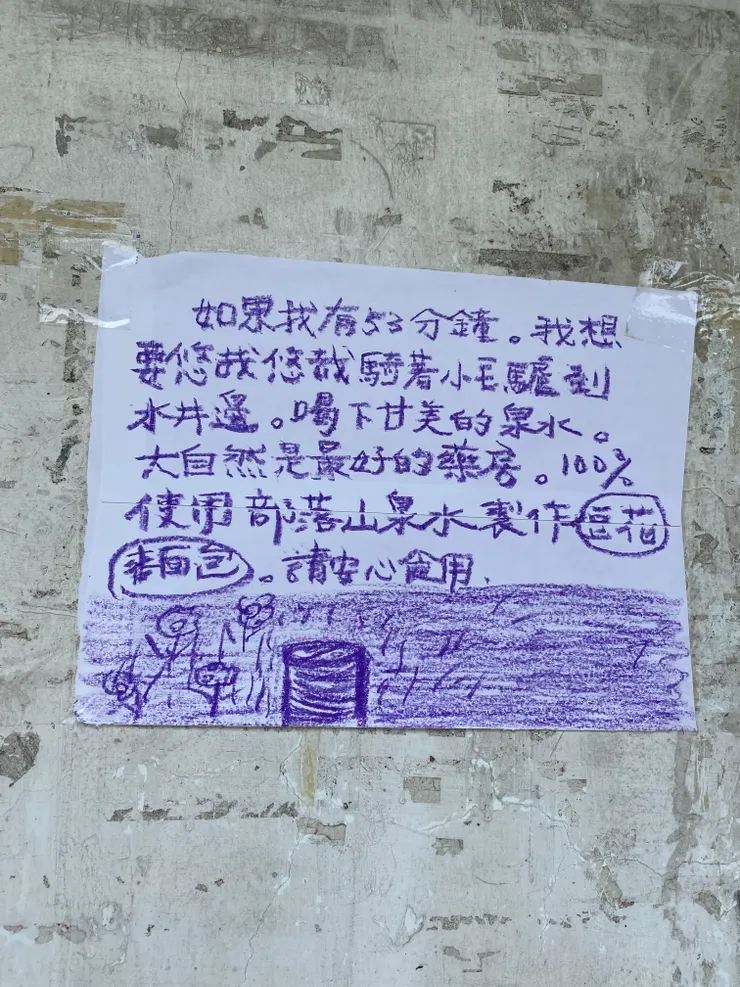 如果我有53分鐘。我想
要悠哉悠哉騎著小毛驢到
水井邊。喝下甘美的泉水。
大自然是最好的藥房。100%
使用部落山泉水製作豆花
麵包。請安心食用.